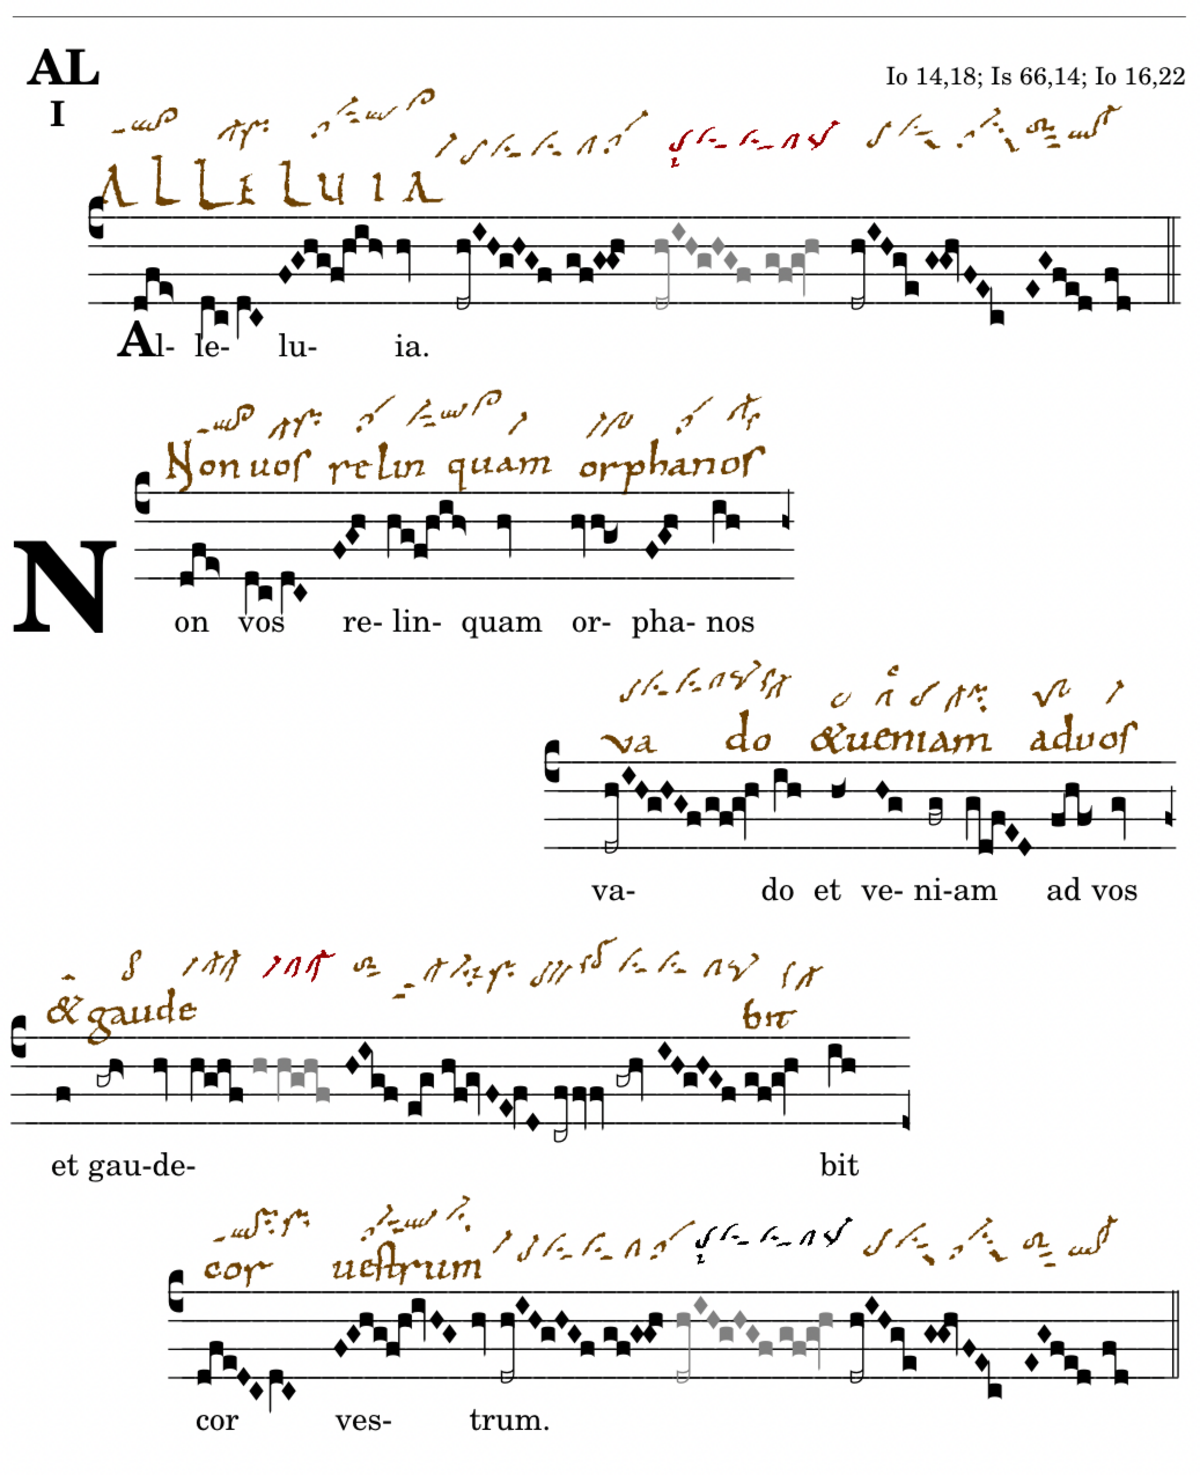 AL
I
Io 14,18; Is 66,14; Io 16,22
ALLELUIA
Al- le- lu- ia.
Non uos relin quam orphanos
N
on vos re- lin- quam or- pha- nos
va do &ueniam aduos
va- do et ve- ni-am ad vos
& gaude bit
et gau-de- bit
cor uestrum
cor ves- trum.